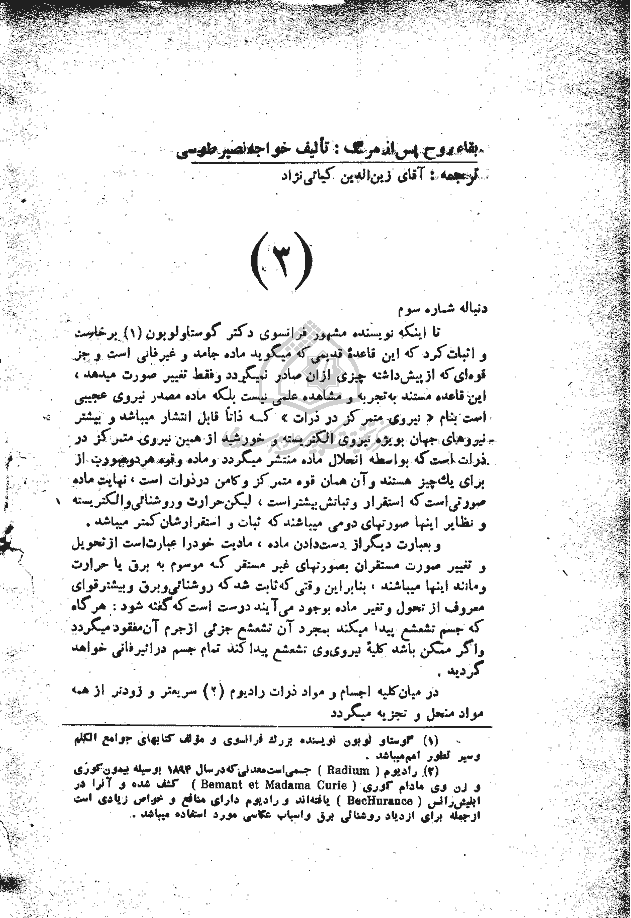 بقاء روح پس از مرگ : تألیف خواجه نصیر طوسی
ترجمه : آقای زین‌الدین کیائی نژاد
(۳)
دنباله شماره سوم
تا اینکه نویسنده مشهور فرانسوی دکتر گوستاولوبون (۱) برخاست
و اثبات کرد که این قاعدهٔ قدیمی که میگوید ماده جامد و غیرفانی است و جز
قوه‌ای که از پیش داشته چیزی از آن صادر نمیگردد و فقط تغییر صورت میدهد ،
این قاعده مستند به تجربه و مشاهده علمی نیست بلکه ماده مصدر نیروی عجیبی
است بنام « نیروی متمرکز در ذرات » که ذاتاً قابل انتشار میباشد و بیشتر
نیروهای جهان بویژه نیروی الکتریسته و خورشید از همین نیروی متمرکز در
ذرات است که بواسطه انحلال ماده منتشر میگردد و ماده و قوه هر دو صورت از
برای یك چیز هستند و آن همان قوه متمرکز و کامن در ذرات است ، نهایت ماده
صورتی است که استقرار و ثباتش بیشتر است ، لیکن حرارت و روشنائی و الکتریسته
و نظایر اینها صورتهای دومی میباشند که ثبات و استقرارشان کمتر میباشد .
و بعبارت دیگر از دست‌دادن ماده ، مادیت خود را عبارت است از تحویل
و تغییر صورت مستقران بصورتهای غیر مستقر که موسوم به برق یا حرارت
و مانند اینها میباشند ، بنابراین وقتی که ثابت شد که روشنائی و برق و بیشتر قوای
معروف از تحول و تغیر ماده بوجود می‌آیند دوست است که گفته شود : هر گاه
که جسم تشعشع پیدا میکند بمجرد آن تشعشع جزئی از جرم آن مفقود میگردد
و اگر ممکن باشد کلیهٔ نیروی وی تشعشع پیدا کند تمام جسم در اثیر فانی خواهد
گردید .
در میان کلیه اجسام و مواد ذرات رادیوم (۲) سریعتر و زودتر از همه
مواد منحل و تجزیه میگردد
(۱) گوستاو لوبون نویسنده بزرك فرانسوی و مؤلف کتابهای جوامع الکلم
و سیر تطور امم میباشد .
(۲) رادیوم ( Radium ) جسمی است معدنی که در سال ۱۸۹۴ بوسیله بیمون کوری
و زن وی مادام کوری ( Bemant et Madama Curie ) کشف شده و آنرا در
ابلیش رانس ( BecHurance ) یافته‌اند و رادیوم دارای منافع و خواص زیادی است
از جمله برای ازدیاد روشنائی برق و اسباب عکاسی مورد استفاده میباشد .